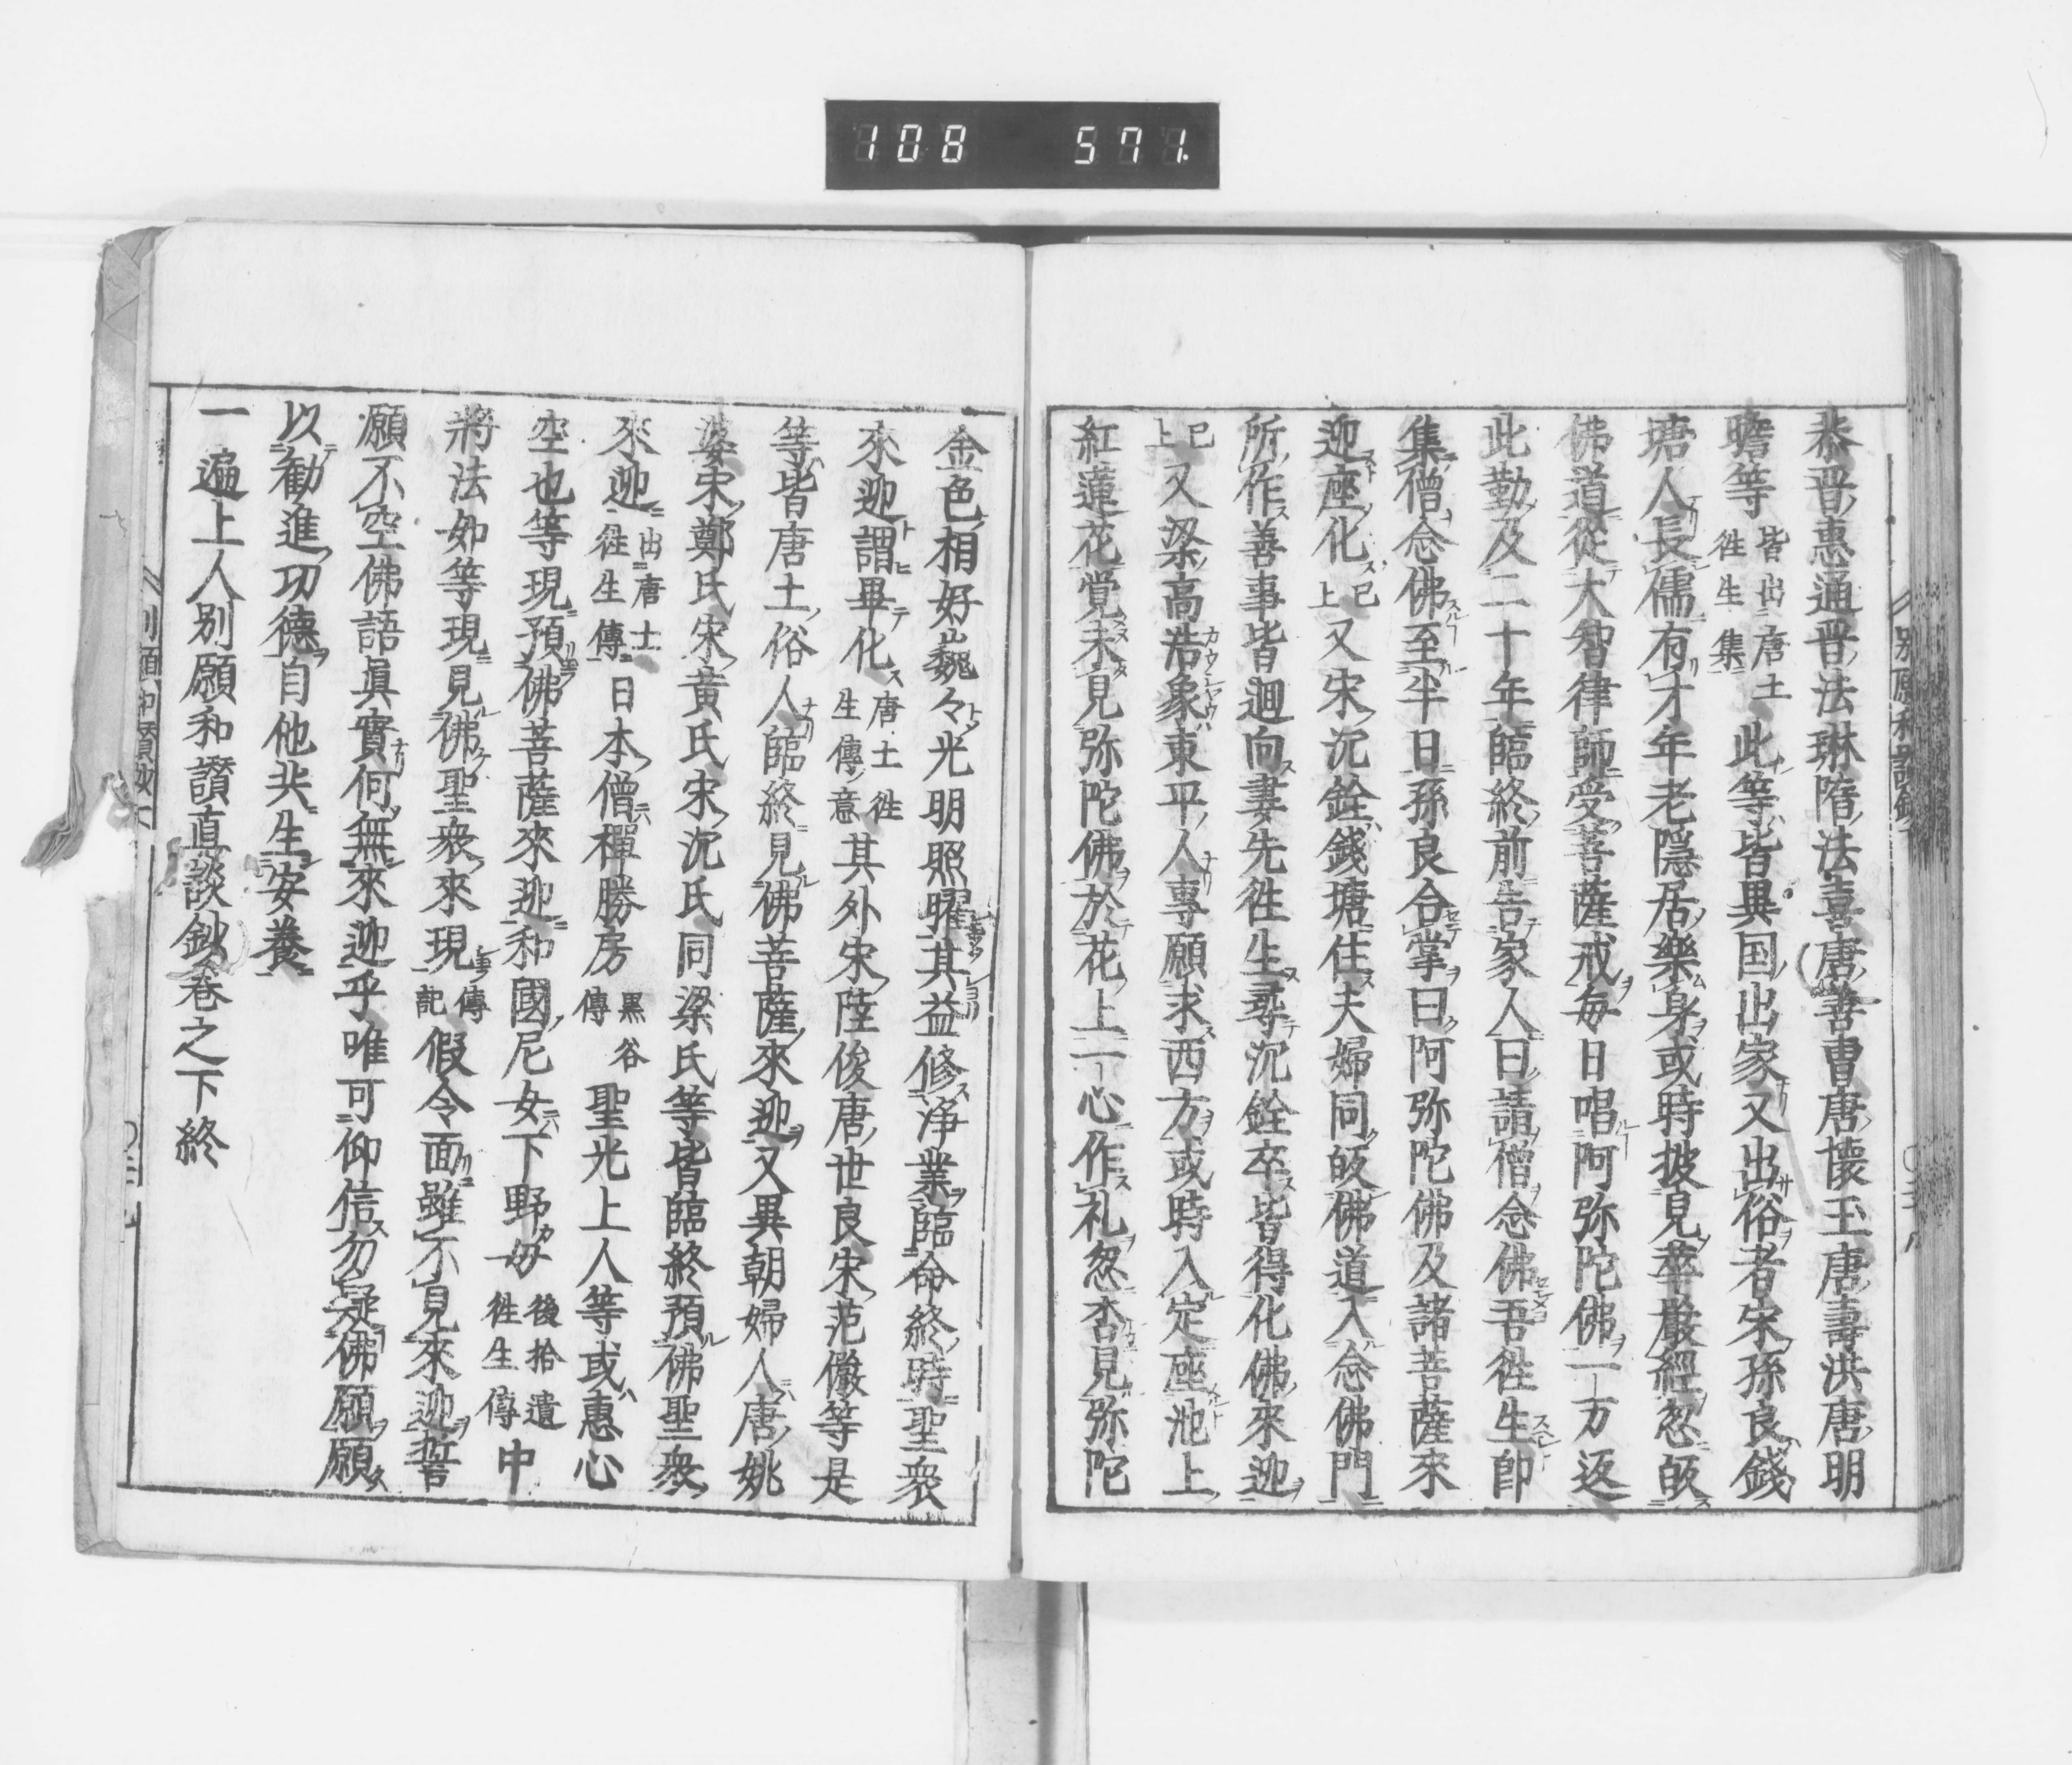 108 571.
恭晋惠通晋法琳隋法喜唐善曹唐懷玉唐壽洪唐明
瞻等皆出唐土徃生集此等皆異国出家又出俗者宋孫良錢
塘人長儒有才年老隠居樂身或時披見華厳經忽皈
佛道從大智律師受菩薩戒毎日唱阿弥陀佛一万返
此勤及二十年臨終前告家人曰請僧念佛吾徃生即
集僧念佛至半日孫良合掌曰阿弥陀佛及諸菩薩來
迎座化已上又宋沉銓錢塘住夫婦同皈佛道入念佛門
所作善事皆迴向妻先徃生尋沉銓卒皆得化佛來迎
已上又梁高浩象東平人專願求西方或時入定座池上
紅蓮花覚未見弥陀佛於花上一心作礼忽杳見弥陀
金色相好巍々光明照曜其益修浄業臨命終時聖衆
來迎謂畢化唐土徃生傳意其外宋陸俊唐世良宋范儼等是
等皆唐土俗人臨終見佛菩薩來迎又異朝婦人唐姚
婆宋鄭氏宋黃氏宋沉氏同梁氏等皆臨終預佛聖衆
來迎出唐土徃生傳日本僧禪勝房黒谷傳聖光上人等或惠心
空也等現預佛菩薩來迎和國尼女下野毋後拾遺徃生傳中
將法如等現見佛聖衆來現傳記假令面雖不見來迎誓
願不空佛語眞實何無來迎乎唯可仰信勿疑佛願願
以勸進功德自他共生安養
一遍上人別願和讃直談鈔巻之下終